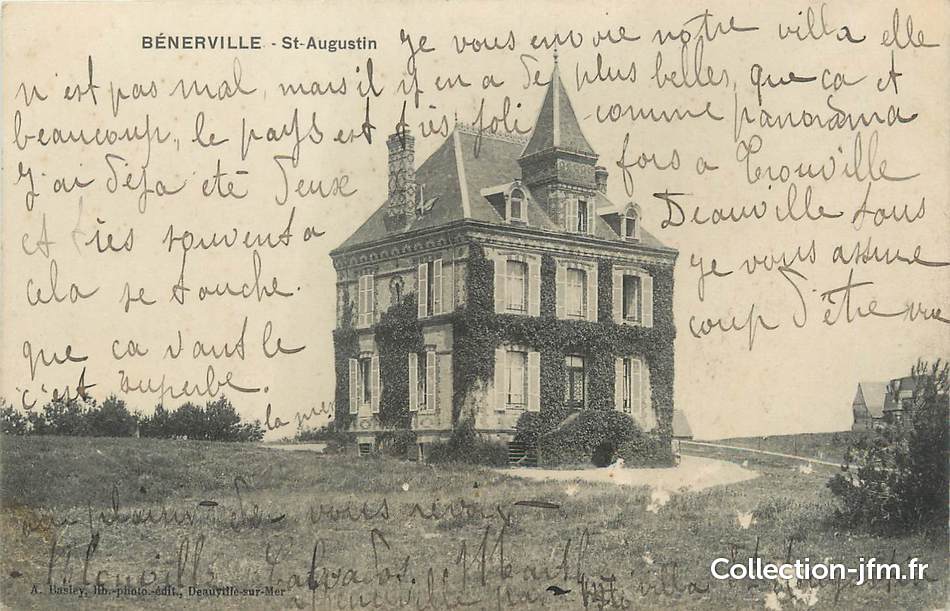 BÉNERVILLE - St-Augustin
Je vous envoie notre villa elle
n'est pas mal, mais il y en a de plus belles, que ca et
beaucoup, le pays est très joli comme panorama
J'ai déja été deux fois a Trouville
et très souvent a Deauville tous
cela se touche. Je vous assure
que ca vaut le coup d'être vu
c'est superbe.
la mer
au plaisir de vous revoir
Calvados.
A. Basley, lib.-photo.-édit., Deauville-sur-Mer
villa
Collection-jfm.fr